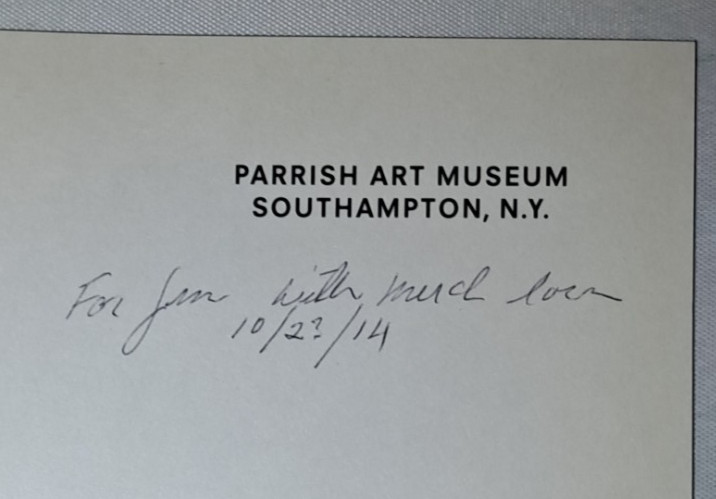 PARRISH ART MUSEUM
SOUTHAMPTON, N.Y.
For with much love
10/23/14